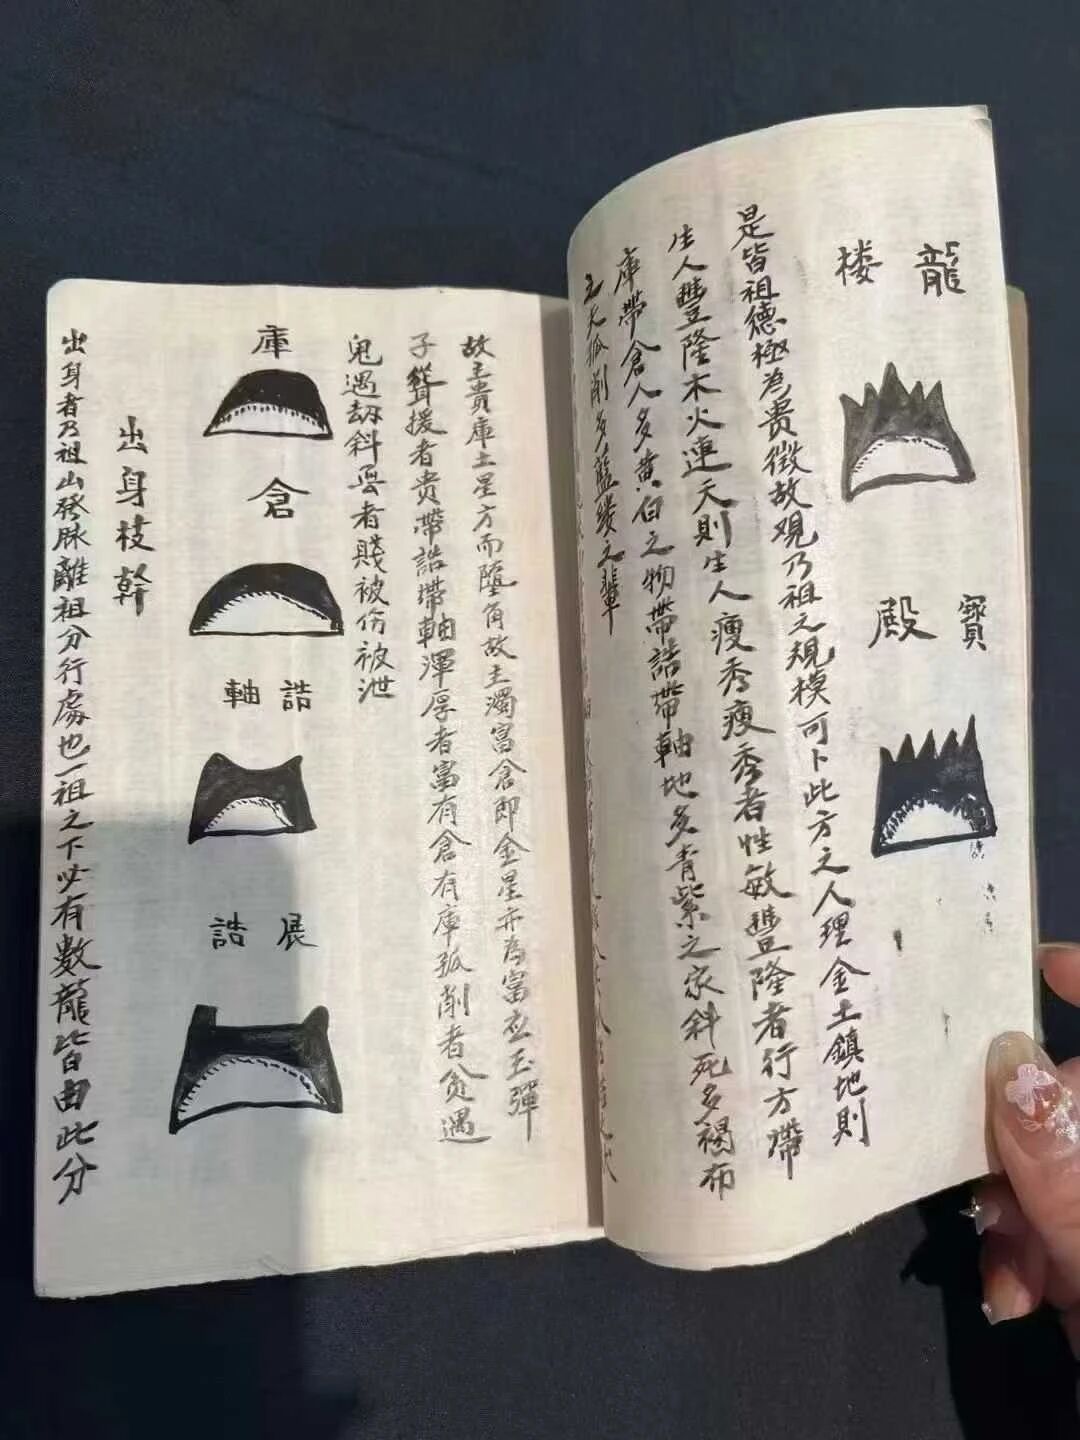 龍楼
寶殿
是皆祖德極為贵徵故观乃祖之規模可卜此方之人理金土鎮地則
生人豐隆木火連天則生人瘦秀瘦秀者性敏豐隆者行方帶
庫帶倉人多黄白之物帶誥帶軸地多青紫之家斜死多褐布
之夫孤削多藍縷之輩
故主貴庫土星方而墮角故主濁富倉即金星亦為富左玉彈
子聳援者贵帶誥帶軸渾厚者富有倉有庫孤削者贫遇
鬼遇劫斜歪者賤被伤被泄
庫
倉
誥軸
展誥
出身枝幹
出身者乃祖山發脉離祖分行處也一祖之下必有數龍皆由此分